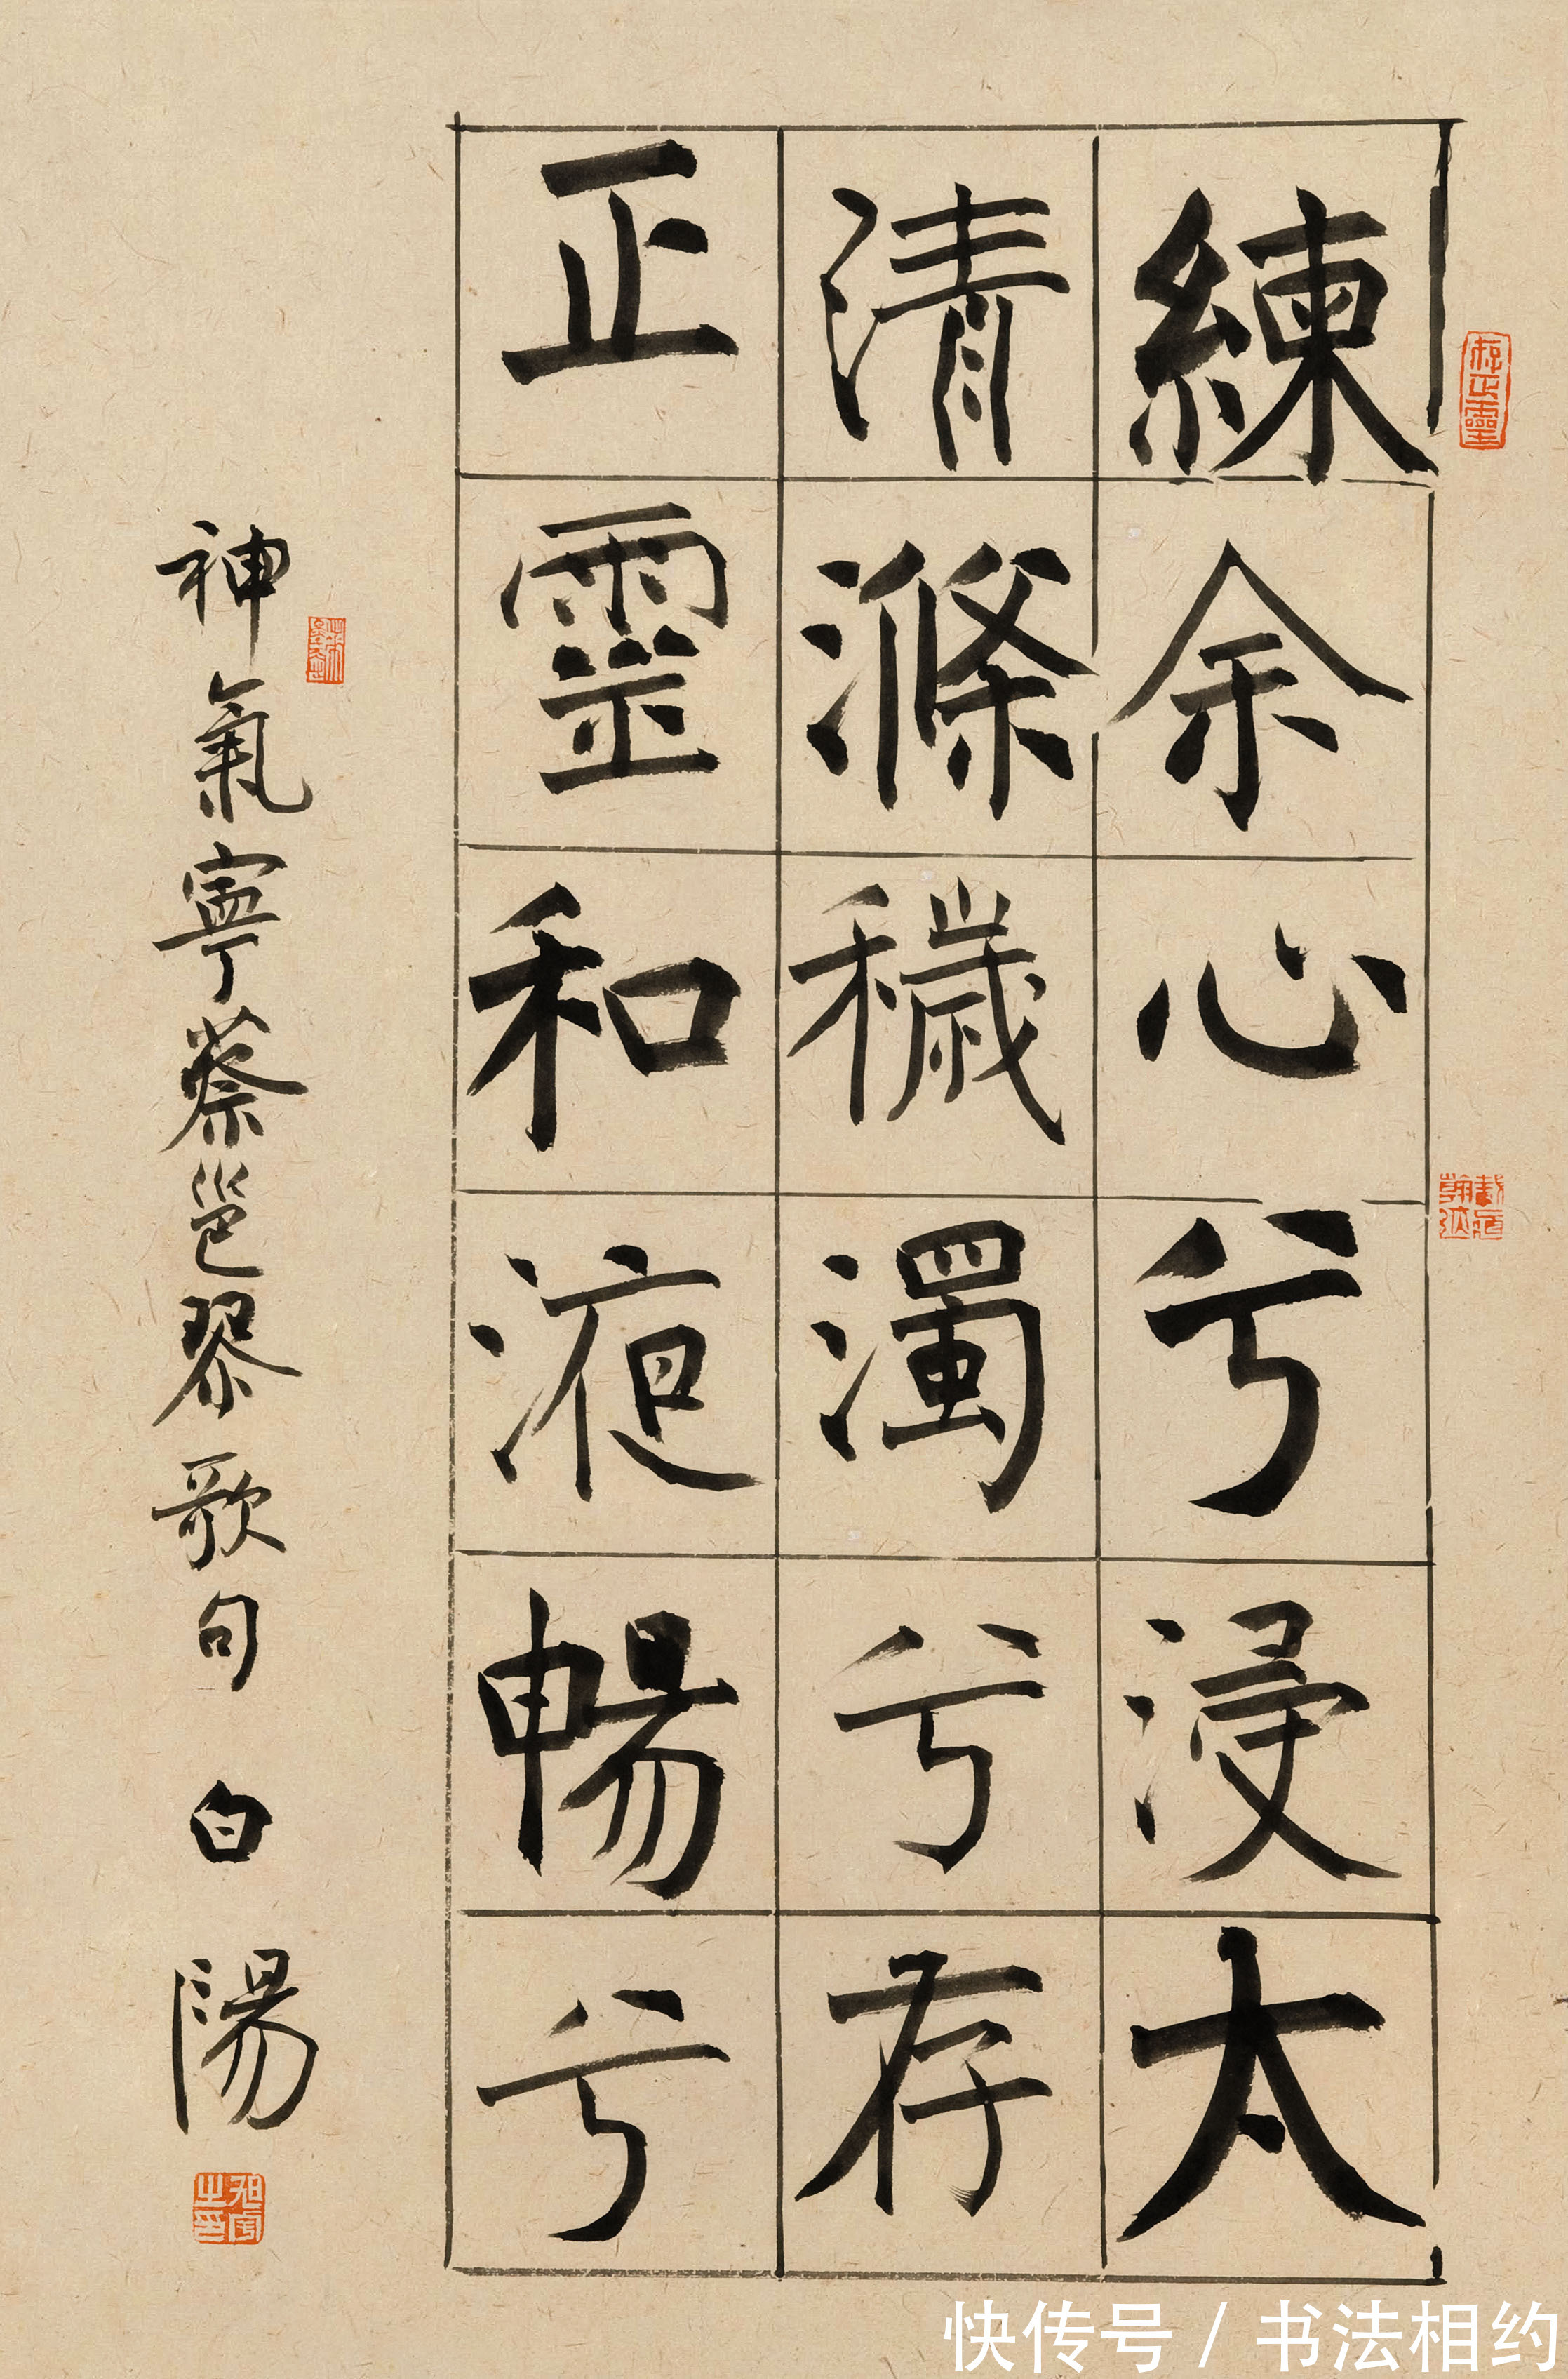 練余心兮浸太
清滌穢濁兮存
正靈和液暢兮
神氣寧蔡邕琴歌句 白陽
存正靈
快传号 / 书法相约